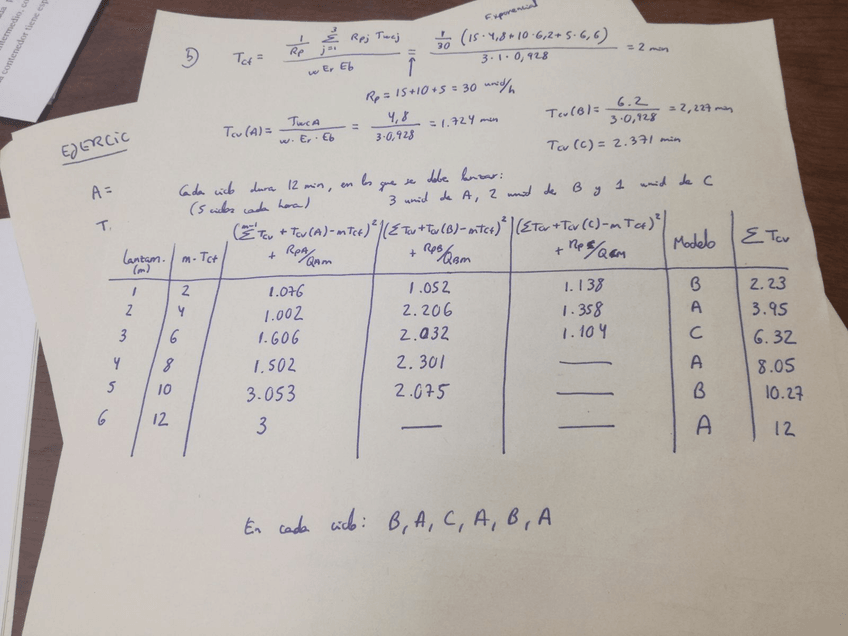 Exponencial
b) Tcf = (1/Rp Σ(j=1 → 3) Rpj Twcj) / (w Er Eb) = (1/30 (15·4,8+10·6,2+5·6,6)) / (3·1·0,928) = 2 min
Rp = 15+10+5 = 30 unid/h
Tcv(A) = TwcA / (w·Er·Eb) = 4,8 / (3·0,928) = 1.724 min
Tcv(B) = 6.2 / (3·0,928) = 2,227 min
Tcv(C) = 2.371 min
EJERCIC
A =
Cada ciclo dura 12 min, en los que se debe lanzar:
(5 ciclos cada hora) 3 unid de A, 2 unid de B y 1 unid de C
T.
Lanzam. (m) | m·Tcf | (Σ(m-1) Tcv + Tcv(A) - mTcf)² + RpA/QAm | (ΣTcv + Tcv(B) - mTcf)² + RpB/QBm | (ΣTcv + Tcv(C) - m Tcf)² + Rpc/Qcm | Modelo | ΣTcv
1 | 2 | 1.076 | 1.052 | 1.138 | B | 2.23
2 | 4 | 1.002 | 2.206 | 1.358 | A | 3.95
3 | 6 | 1.606 | 2.032 | 1.104 | C | 6.32
4 | 8 | 1.502 | 2.301 | — | A | 8.05
5 | 10 | 3.053 | 2.075 | — | B | 10.27
6 | 12 | 3 | — | — | A | 12
En cada ciclo: B, A, C, A, B, A